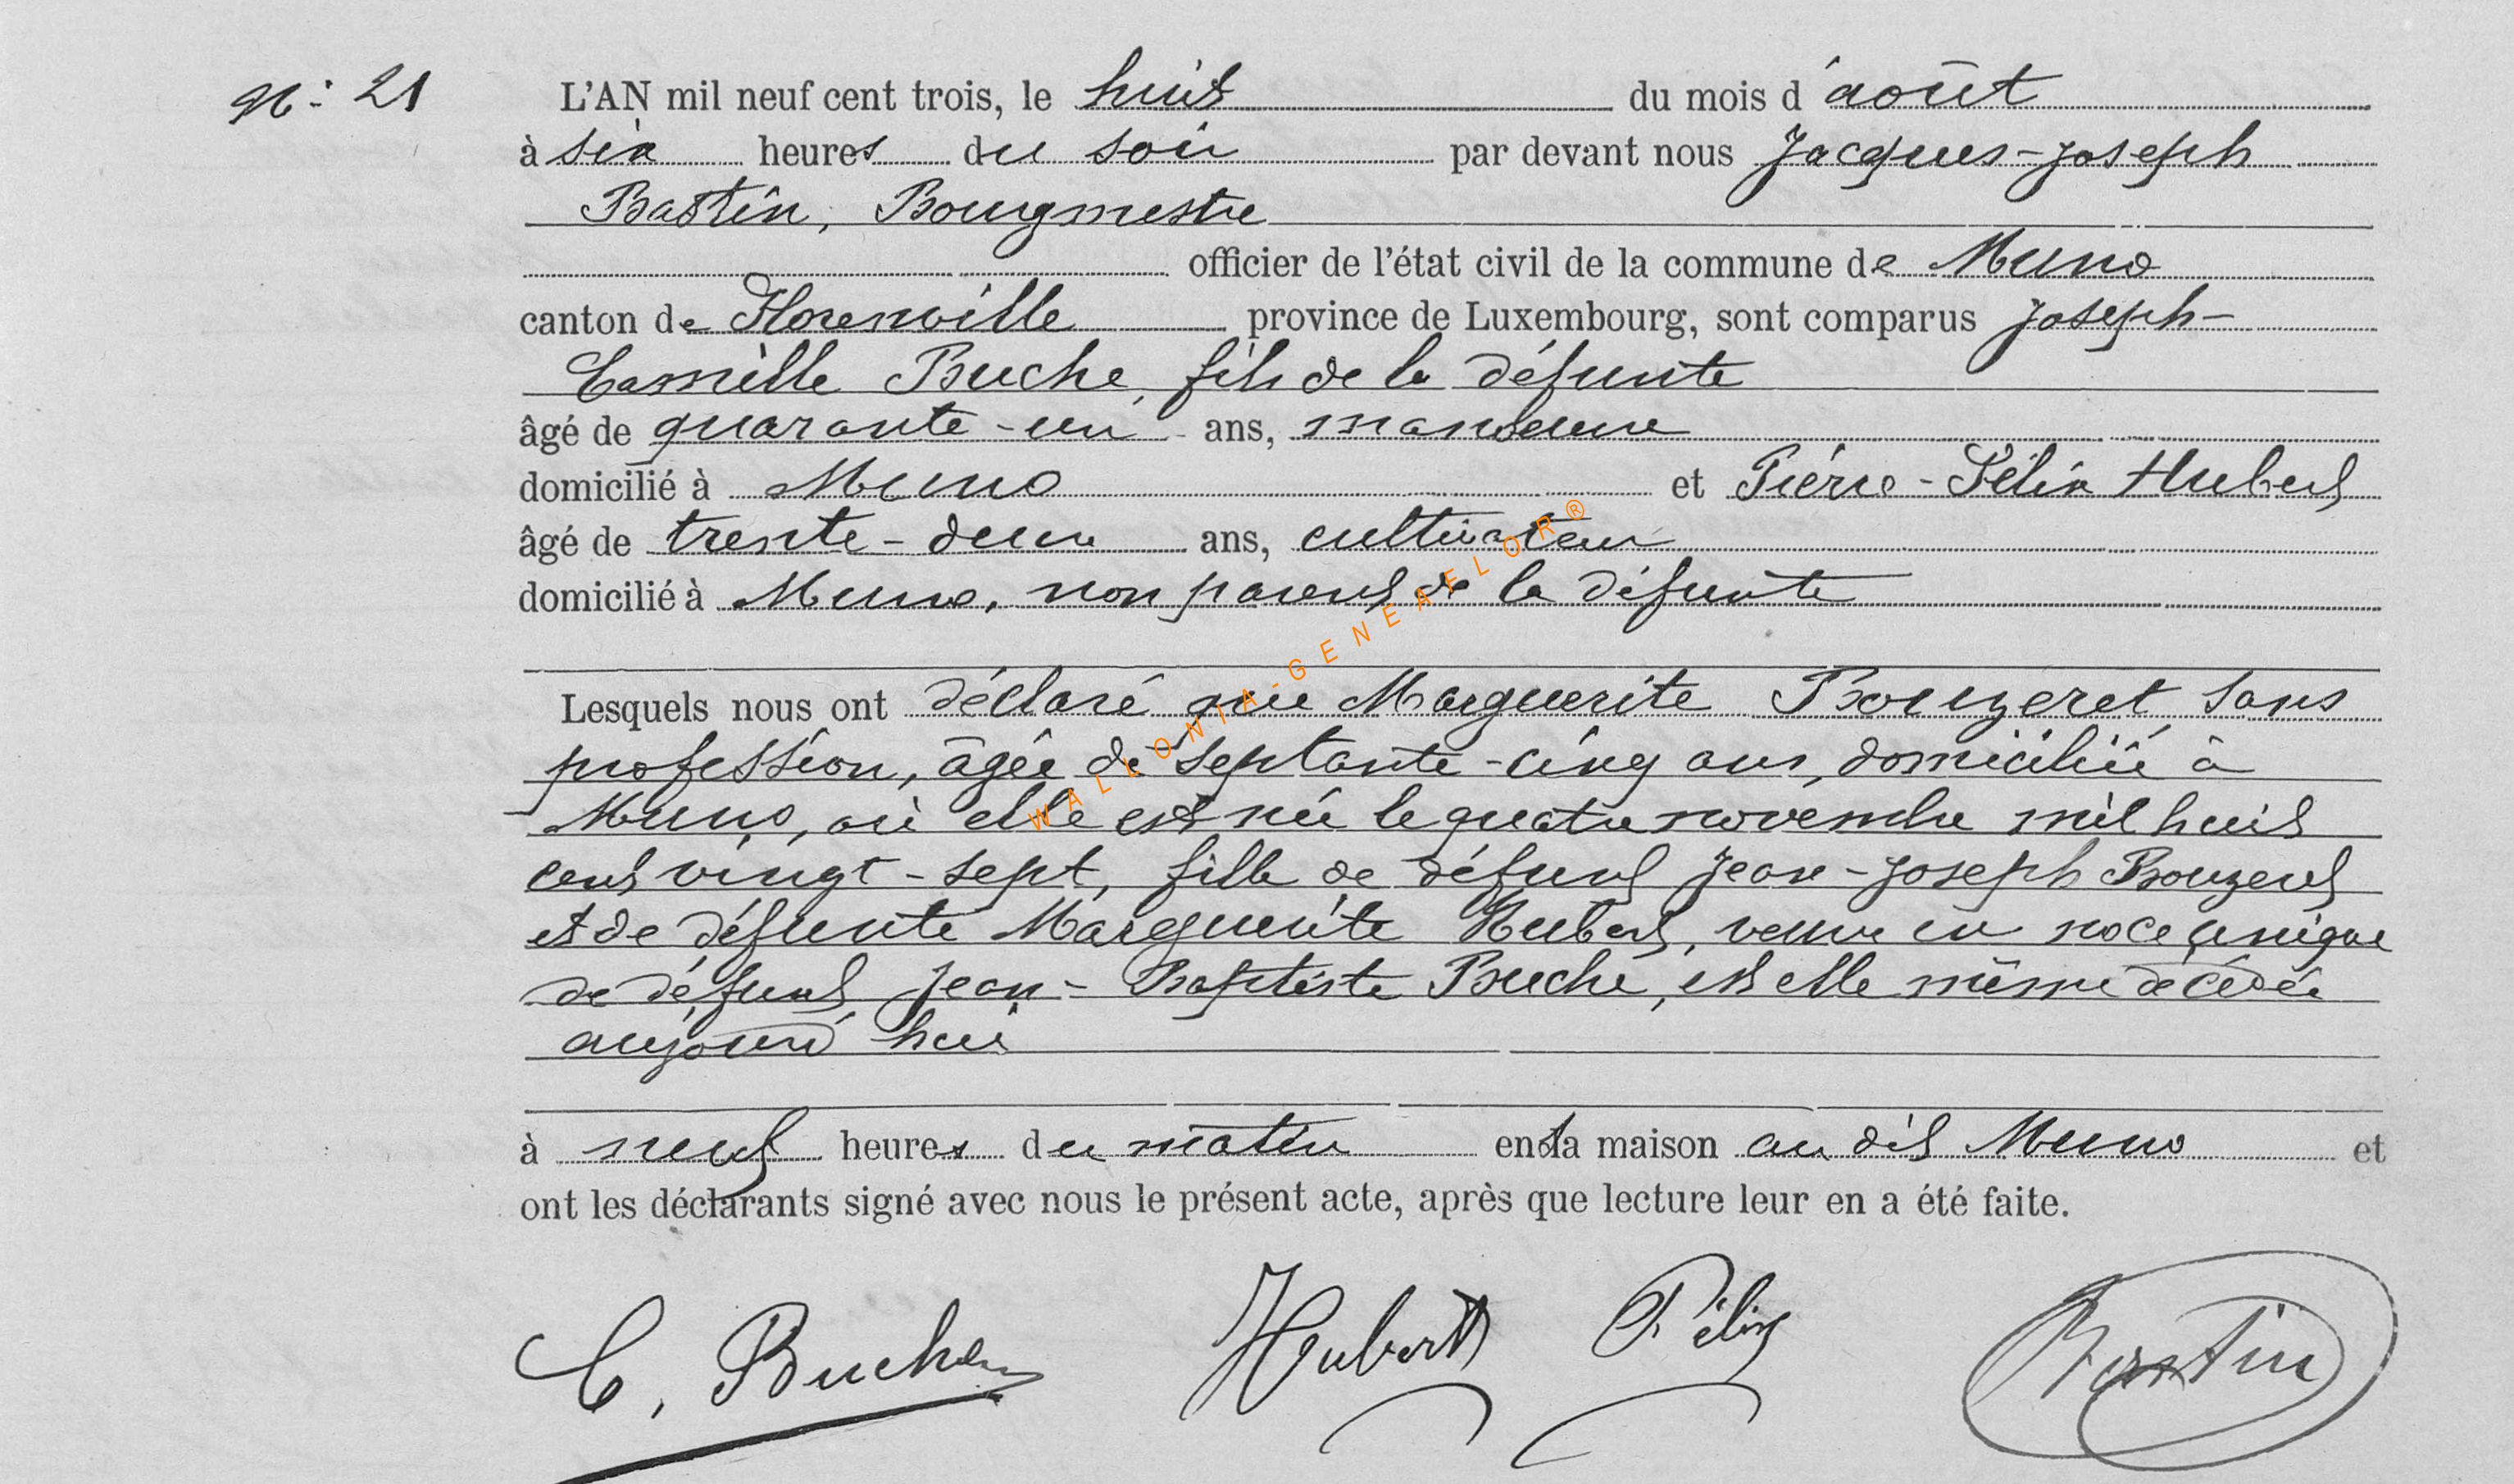 N.: 21
L'AN mil neuf cent trois, le huit du mois d'août
à six heures du soir par devant nous Jacques-Joseph
Bastin, Bourgmestre
officier de l'état civil de la commune de Muno
canton de Florenville province de Luxembourg, sont comparus Joseph-
Camille Buche, fils de la défunte
âgé de quarante-un ans, manoeuvre
domicilié à Muno et Pierre-Félix Hubert
âgé de trente-deux ans, cultivateur
domicilié à Muno, non parent de la défunte
Lesquels nous ont déclaré que Marguerite Bouzeret, sans
profession, âgée de septante-cinq ans, domiciliée à
Muno, où elle est née le quatre novembre mil huit
cent vingt-sept, fille de défunt Jean-Joseph Bouzeret
et de défunte Marguerite Hubert, veuve en noce unique
de défunt Jean-Baptiste Buche, est elle même décédée
aujourd'hui
à neuf heures du matin en sa maison au dit Muno et
ont les déclarants signé avec nous le présent acte, après que lecture leur en a été faite.
C. Buche Hubert Félix Bastin
WALLONIA-GENEAFLOR®